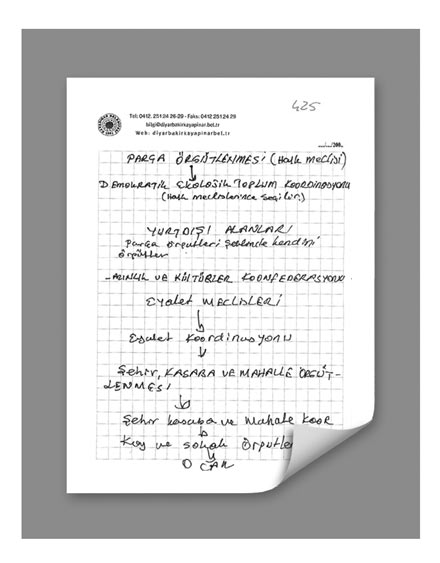 425
Tel: 0412. 251 24 26-29 - Faks: 0412 251 24 29
bilgi@diyarbakirkayapinar.bel.tr
Web: diyarbakirkayapinarbel.tr
..../..../200..
PARÇA ÖRGÜTLENMESİ (Halk Meclisi)
DEMOKRATİK EKOLOJİK TOPLUM KOORDİNASYONU
(Halk meclislerince seçilir.)
YURTDIŞI ALANLARI
Parça örgütleri şeklinde kendini
örgütler
- AZINLIK VE KÜLTÜRLER KONFEDERASYONU
Eyalet MECLİSLERİ
Eyalet Koordinasyonu
Şehir, KASABA VE MAHALLE ÖRGÜT-
LENMESİ
Şehir kasaba ve Mahalle KOOR
Köy ve sokak Örgütle
OCAK